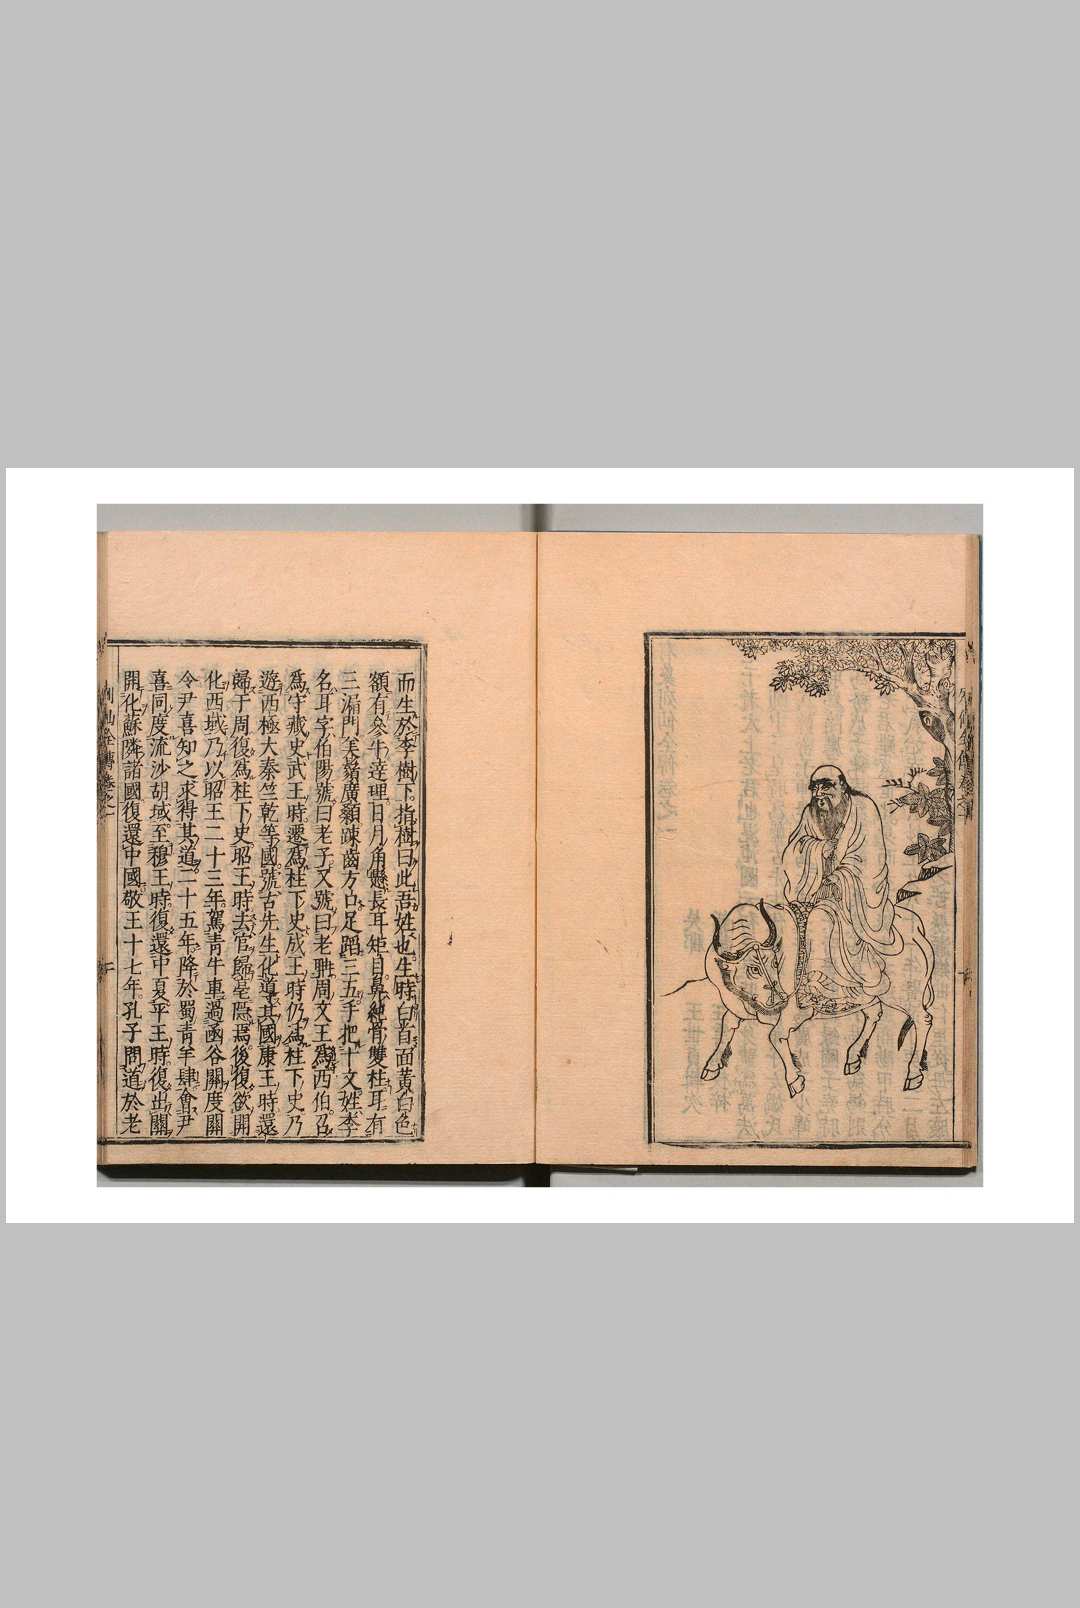 而生於李樹下指樹曰此吾姓也生時白首面黃白色
額有參牛達理日月角懸長耳矩目鼻純骨雙柱耳有
三漏門美鬚廣顙疎齒方口足蹈三五手把十文姓李
名耳字伯陽號曰老子又號曰老聃周文王為西伯召
為守藏史武王時遷為柱下史成王時仍為柱下史乃
遊西極大秦竺乾等國號古先生化導其國康王時還
歸于周復為柱下史昭王時去官歸亳隱焉後復欲開
化西域乃以昭王二十三年駕青牛車過函谷關度關
令尹喜知之求得其道二十五年降於蜀青羊肆會尹
喜同度流沙胡域至穆王時復還中夏平王時復出關
開化蘇隣諸國復還中國敬王十七年孔子問道於老
列仙全傳卷之一
二